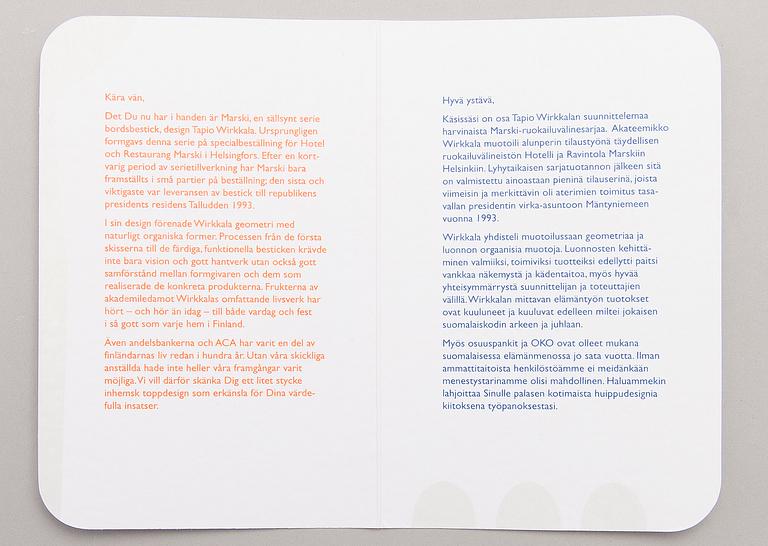 Kära vän,
Det Du nu har i handen är Marski, en sällsynt serie
bordsbestick, design Tapio Wirkkala. Ursprungligen
formgavs denna serie på specialbeställning för Hotel
och Restaurang Marski i Helsingfors. Efter en kort-
varig period av serietillverkning har Marski bara
framställts i små partier på beställning; den sista och
viktigaste var leveransen av bestick till republikens
presidents residens Talludden 1993.
I sin design förenade Wirkkala geometri med
naturligt organiska former. Processen från de första
skisserna till de färdiga, funktionella besticken krävde
inte bara vision och gott hantverk utan också gott
samförstånd mellan formgivaren och dem som
realiserade de konkreta produkterna. Frukterna av
akademiledamot Wirkkalas omfattande livsverk har
hört – och hör än idag – till både vardag och fest
i så gott som varje hem i Finland.
Även andelsbankerna och ACA har varit en del av
finländarnas liv redan i hundra år. Utan våra skickliga
anställda hade inte heller våra framgångar varit
möjliga. Vi vill därför skänka Dig ett litet stycke
inhemsk toppdesign som erkänsla för Dina värde-
fulla insatser.
Hyvä ystävä,
Käsissäsi on osa Tapio Wirkkalan suunnittelemaa
harvinaista Marski-ruokailuvälinesarjaa. Akateemikko
Wirkkala muotoili alunperin tilaustyönä täydellisen
ruokailuvälineistön Hotelli ja Ravintola Marskiin
Helsinkiin. Lyhytaikaisen sarjatuotannon jälkeen sitä
on valmistettu ainoastaan pieninä tilauserinä, joista
viimeisin ja merkittävin oli aterimien toimitus tasa-
vallan presidentin virka-asuntoon Mäntyniemeen
vuonna 1993.
Wirkkala yhdisteli muotoilussaan geometriaa ja
luonnon orgaanisia muotoja. Luonnosten kehittä-
minen valmiiksi, toimiviksi tuotteiksi edellytti paitsi
vankkaa näkemystä ja kädentaitoa, myös hyvää
yhteisymmärrystä suunnittelijan ja toteuttajien
välillä. Wirkkalan mittavan elämäntyön tuotokset
ovat kuuluneet ja kuuluvat edelleen miltei jokaisen
suomalaiskodin arkeen ja juhlaan.
Myös osuuspankit ja OKO ovat olleet mukana
suomalaisessa elämänmenossa jo sata vuotta. Ilman
ammattitaitoista henkilöstöämme ei meidänkään
menestystarinamme olisi mahdollinen. Haluammekin
lahjoittaa Sinulle palasen kotimaista huippudesignia
kiitoksena työpanoksestasi.